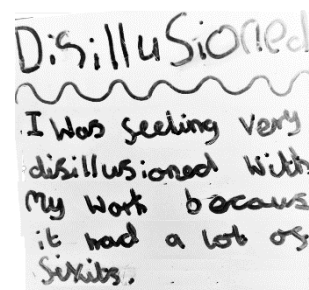 Disillusioned
I Was feeling very
disillusioned with
My Work becaus
it had a lot of